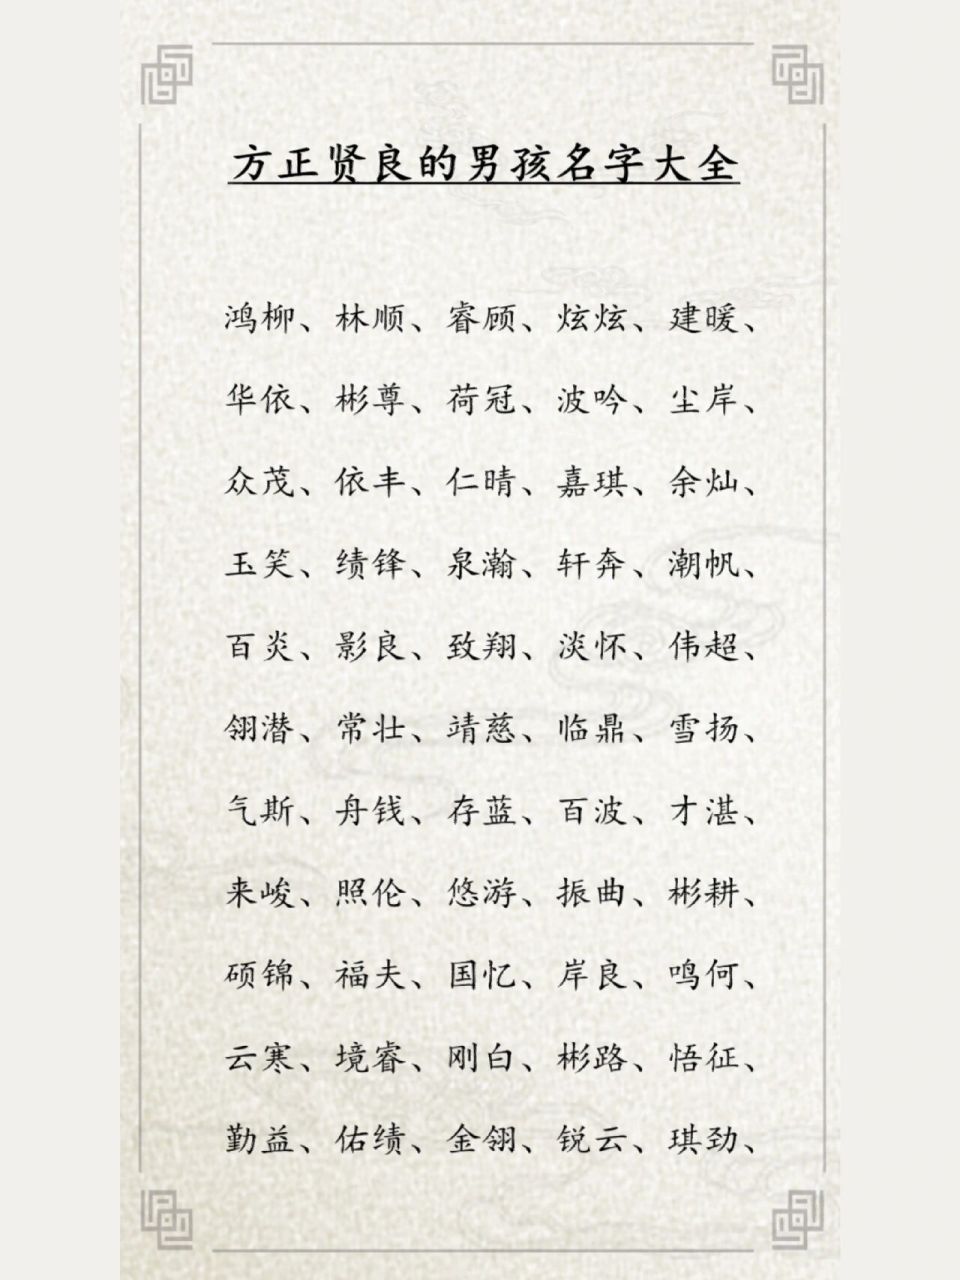 方正贤良的男孩名字大全
鸿柳、林顺、睿顾、炫炫、建暖、
华依、彬尊、荷冠、波吟、尘岸、
众茂、依丰、仁晴、嘉琪、余灿、
玉笑、绩锋、泉瀚、轩奔、潮帆、
百炎、影良、致翔、淡怀、伟超、
翎潜、常壮、靖慈、临鼎、雪扬、
气斯、舟钱、存蓝、百波、才湛、
来峻、照伦、悠游、振曲、彬耕、
硕锦、福夫、国忆、岸良、鸣何、
云寒、境睿、刚白、彬路、悟征、
勤益、佑绩、金翎、锐云、琪劲、